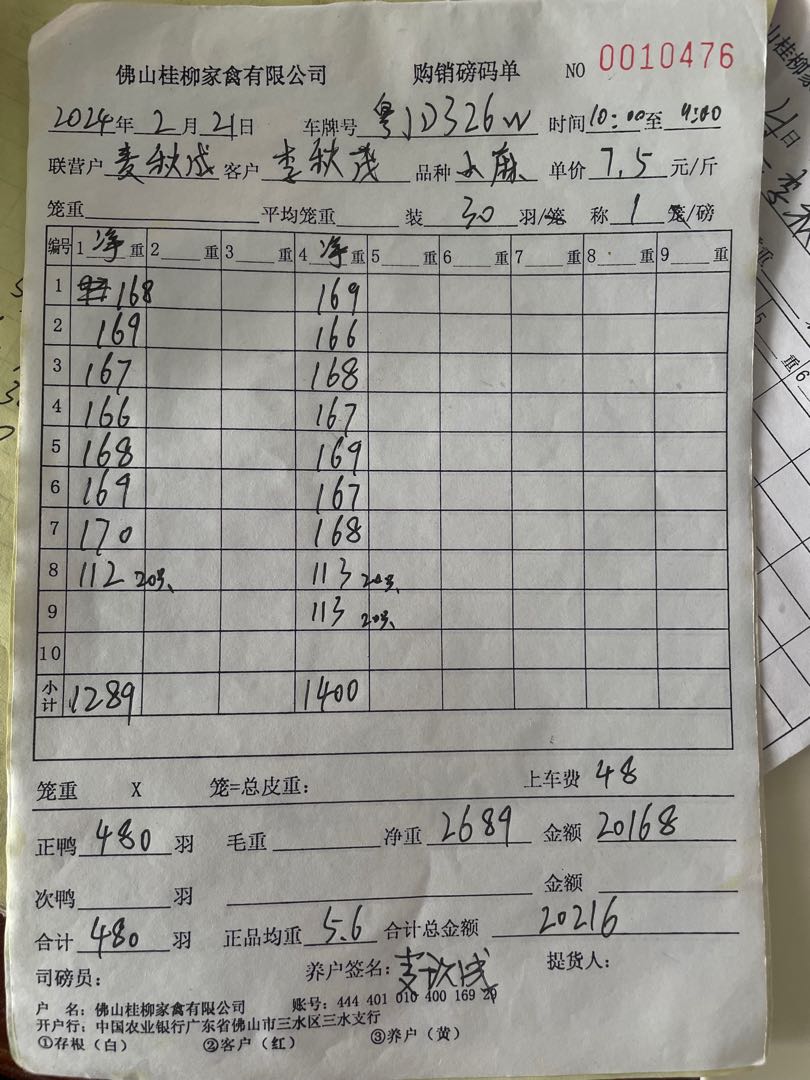 佛山桂柳家禽有限公司 购销磅码单 NO 0010476
2024年 2月 21日 车牌号 粤JD326W 时间10:00至
联营户 麦秋成 客户 李秋茂 品种 小麻 单价 7.5 元/斤
笼重 平均笼重 装 30 羽/笼 称 1 笼/磅
编号 1 净 重 2 重 3 重 4 净 重 5 重 6 重 7 重 8 重 9 重
1 168 169
2 169 166
3 167 168
4 166 167
5 168 169
6 169 167
7 170 168
8 112 20只 113 20只
9 113 20只
10
小计 1289 1400
笼重 X 笼=总皮重: 上车费 48
正鸭 480 羽 毛重 净重 2689 金额 20168
次鸭 羽 金额
合计 480 羽 正品均重 5.6 合计总金额 20216
司磅员: 养户签名: 麦秋成 提货人:
户 名: 佛山桂柳家禽有限公司 账号: 444 401 010 400 169 29
开户行: 中国农业银行广东省佛山市三水区三水支行
①存根(白) ②客户(红) ③养户(黄)